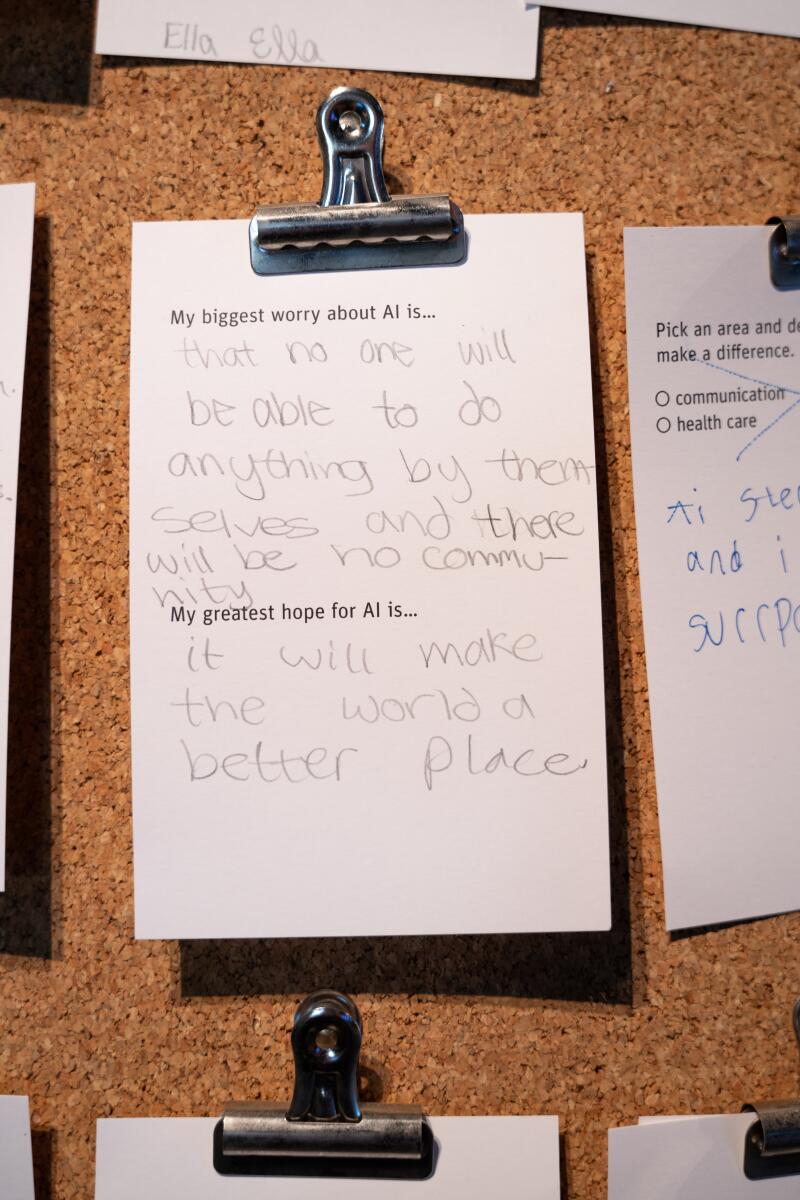 Ella Ella
My biggest worry about AI is...
that no one will
be able to do
anything by them
selves and there
will be no commu-
nity
My greatest hope for AI is...
it will make
the world a
better place.
Pick an area and de
make a difference.
communication
health care
Ai ste
and i
surrpo